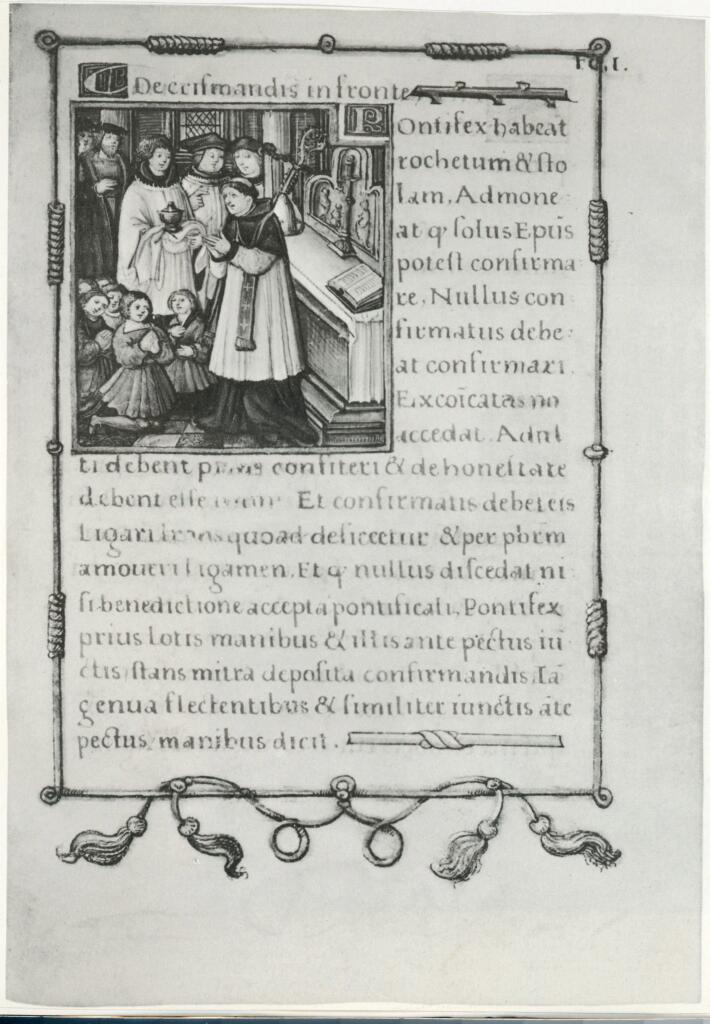 Fo. I.
De crismandis in fronte
POntifex habeat
rochetum & sto
lam. Admone
at q̢ solus Epūs
potest confirma
re. Nullus con
firmatus debe
at confirmari.
Excōicatas no
accedat. Adul
ti debent prius confiteri & de honestate
debent esse Et confirmatis debetis
ligari quoad desiccetur & per pbrm
amoueri ligamen. Et q̢ nullus discedat ni
si benedictione accepta pontificali. Pontifex
prius lotis manibus & illis ante pectus iu
ctis stans mitra deposita confirmandis. Ia
genua flectentibus & similiter iunctis āte
pectus manibus dicit.